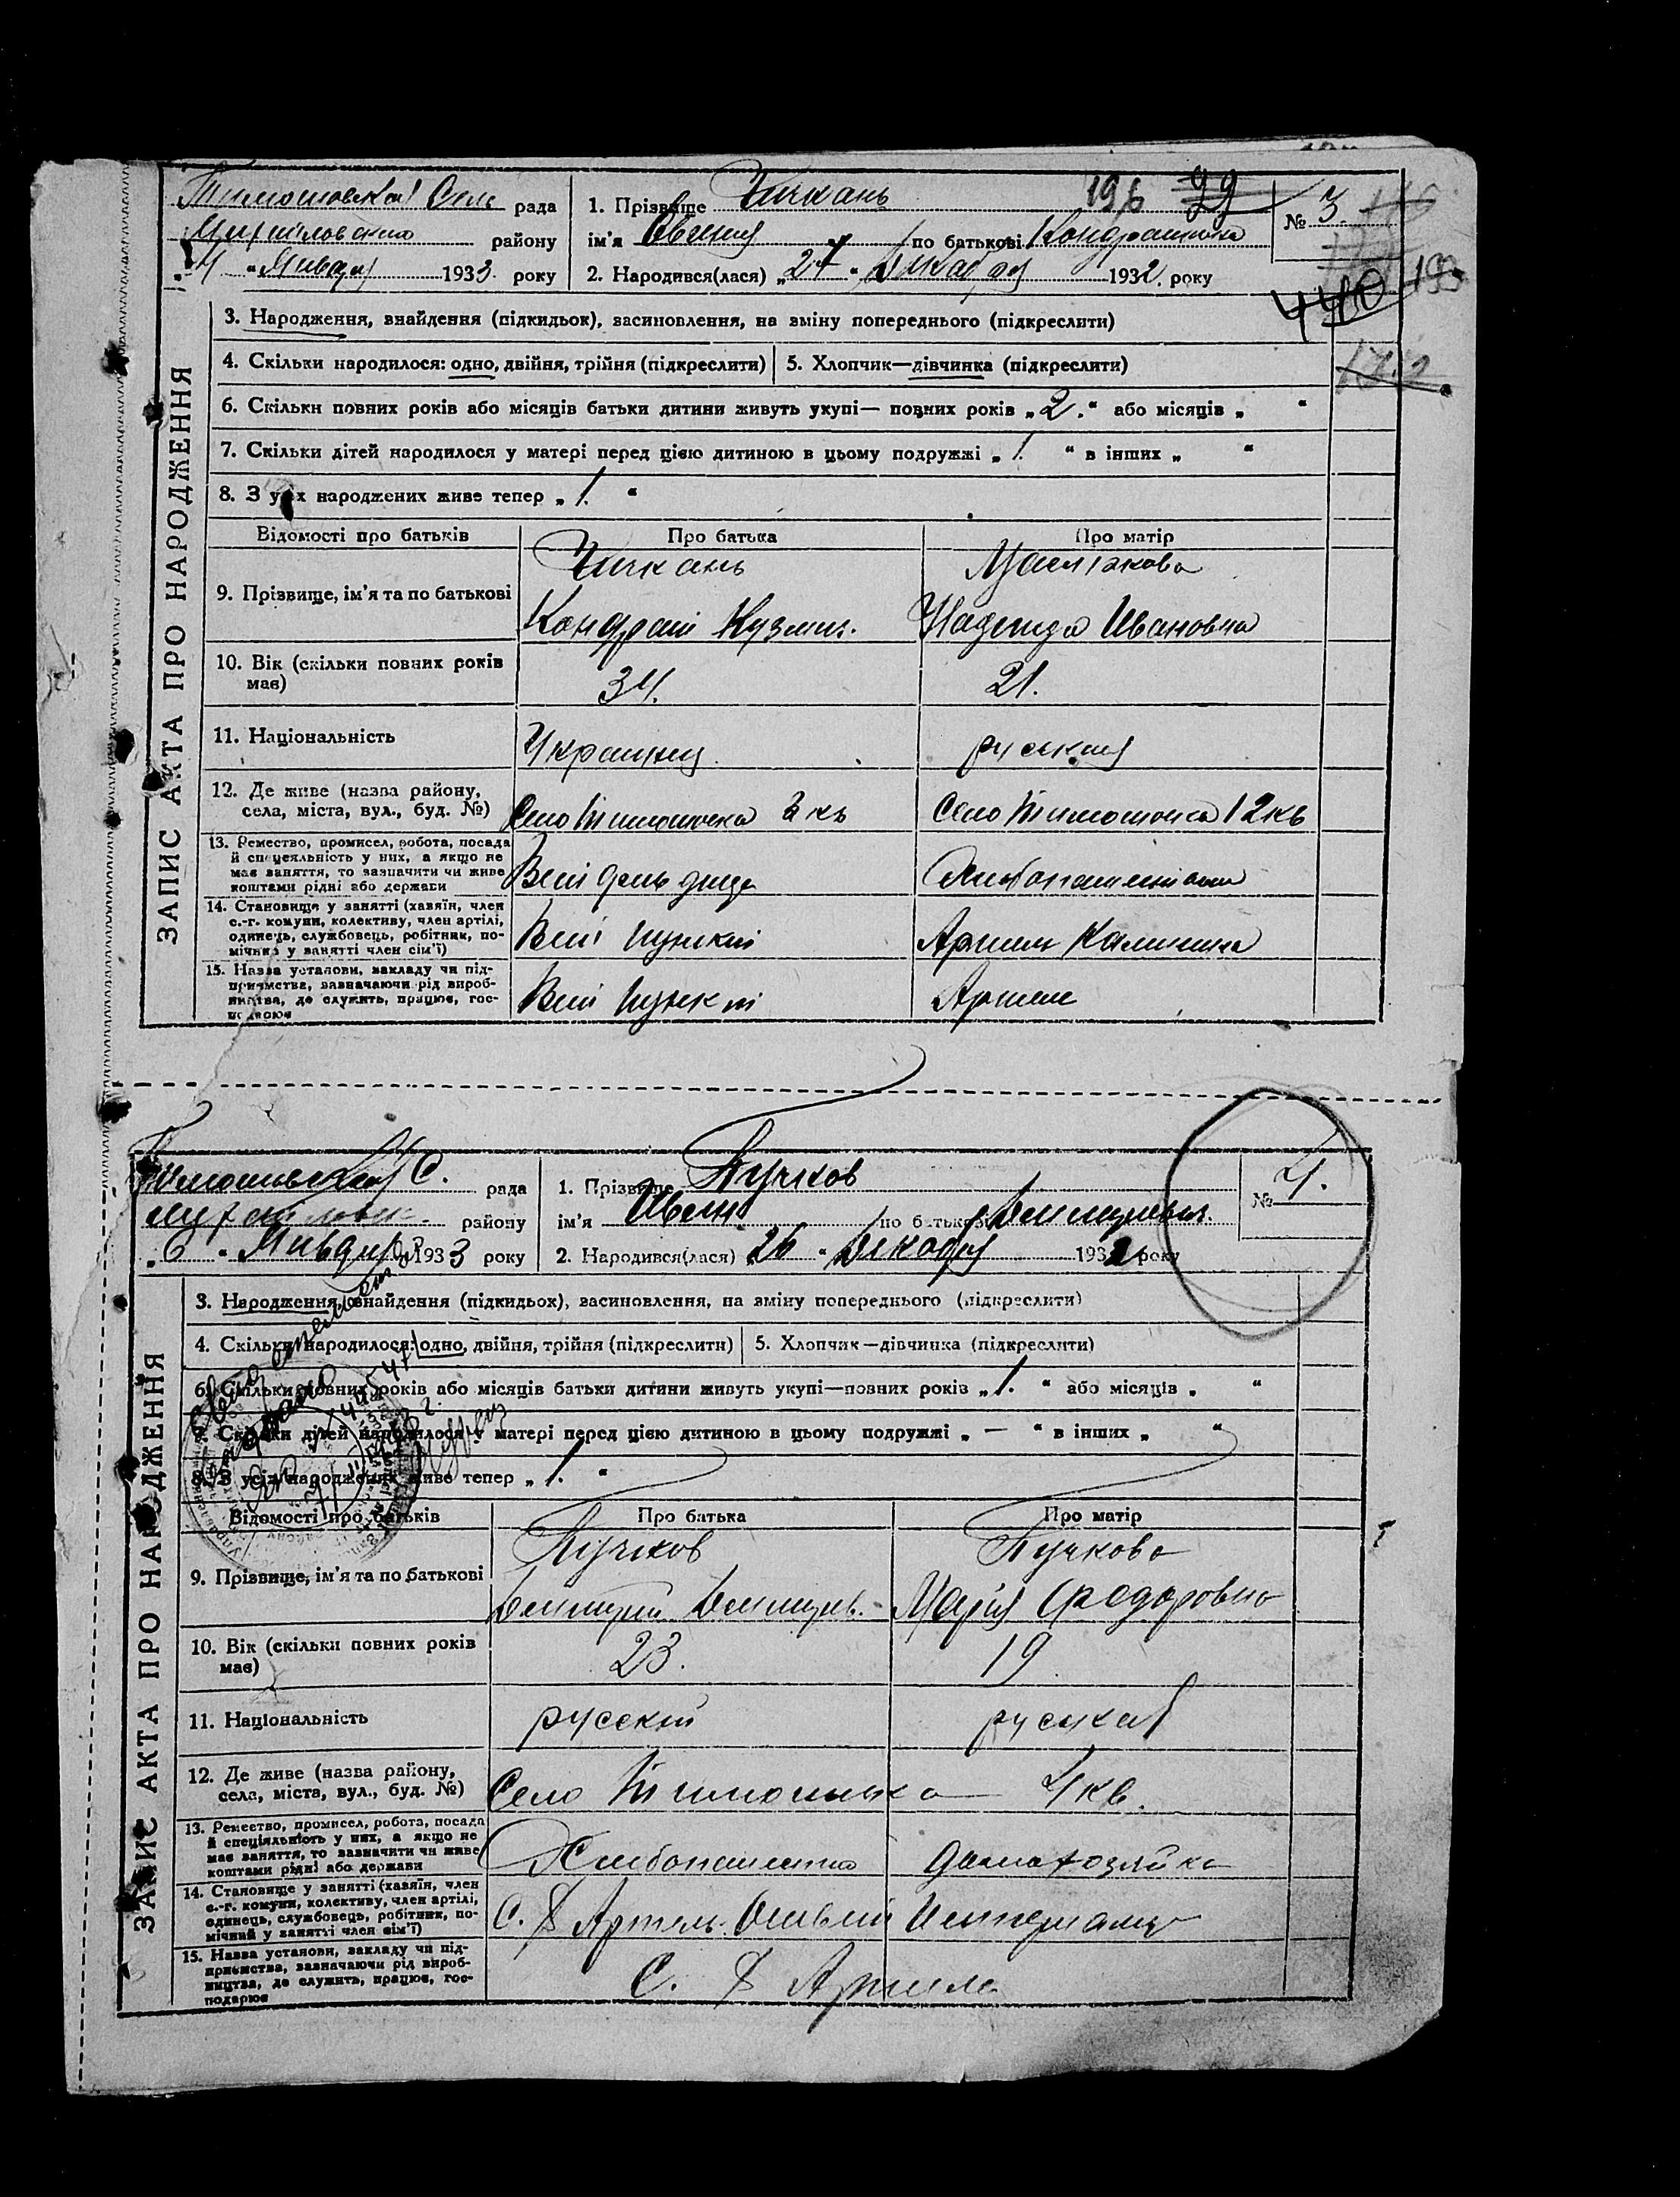 Тимошовская Сель рада
района Михайловского району
4 " Января 1933 року
1. Прізвище Чичкань
196 99
ім'я Євгения по батькові Кондратовна
2. Народився(лася) „27" Декабря 1932. року
№ 3.
440 193
3. Народження, знайдення (підкидьок), засиновлення, на зміну попереднього (підкреслити)
4. Скільки народилося: одно, двійня, трійня (підкреслити) 5. Хлопчик—дівчинка (підкреслити)
6. Скільки повних років або місяців батьки дитини живуть укупі— повних років „2." або місяців „ "
7. Скільки дітей народилося у матері перед цією дитиною в цьому подружжі „1. " в інших „ "
8. З усіх народжених живе тепер „1. "
ЗАПИС АКТА ПРО НАРОДЖЕННЯ
Відомості про батьків Про батька Про матір
9. Прізвище, ім'я та по батькові
Чичкань
Кондрат Кузмич.
Надежда Ивановна
10. Вік (скільки повних років
має)
34. 21.
11. Національність Украинец руськая
12. Де живе (назва району,
села, міста, вул., буд. №)
Село Тимошовка 3 кв Село Тимошовка 12 кв
13. Ремество, промисел, робота, посада
й спеціяльність у них, а якщо не
має заняття, то зазначити чи живе
коштами рідні або держави
Вет
14. Становище у занятті (хазяїн, член
с.-г. комуни, колективу, член артілі,
одинець, службовець, робітник, по-
мічний у занятті член сім'ї)
Вет пункт Артель Калинина
15. Назва установи, закладу чи під-
приємства, зазначаючи рід вироб-
ництва, де служить, працює, гос-
подарює
Вет пункт Артель
Тимошовская С. рада
Михайловск. району
„6 " Января 1933 року
1. Прізвище Пучков
ім'я Иван по батькові Дмитриевич.
2. Народився(лася) 26 " Декабря 1932 року
№ 4.
3. Народження, знайдення (підкидьох), засиновлення, на зміну попереднього (підкреслити)
4. Скільки народилося: одно, двійня, трійня (підкреслити) 5. Хлопчик—дівчинка (підкреслити)
6. Скільки повних років або місяців батьки дитини живуть укупі—повних років „1. " або місяців „ "
7. Скільки дітей народилося у матері перед цією дитиною в цьому подружжі „ — " в інших „ "
8. З усіх народжених живе тепер „1. "
ЗАПИС АКТА ПРО НАРОДЖЕННЯ
Відомості про батьків Про батька Про матір
9. Прізвище, ім'я та по батькові
Пучков Пучкова
Дмитрий Дмитриев. Марія Федоровна
10. Вік (скільки повних років
має)
23. 19
11. Національність русский руская
12. Де живе (назва району,
села, міста, вул., буд. №)
Село Тимошовка 4 кв.
13. Ремество, промисел, робота, посада
й спеціяльність у них, а якщо не
має заняття, то зазначити чи живе
коштами рідні або держави
Хлебопашество домахозяйка
14. Становище у занятті (хазяїн, член
с.-г. комуни, колективу, член артілі,
одинець, службовець, робітник, по-
мічний у занятті член сім'ї)
С. Х Артель
15. Назва установи, закладу чи під-
приємства, зазначаючи рід вироб-
ництва, де служить, працює, гос-
подарює
С. Х Артель